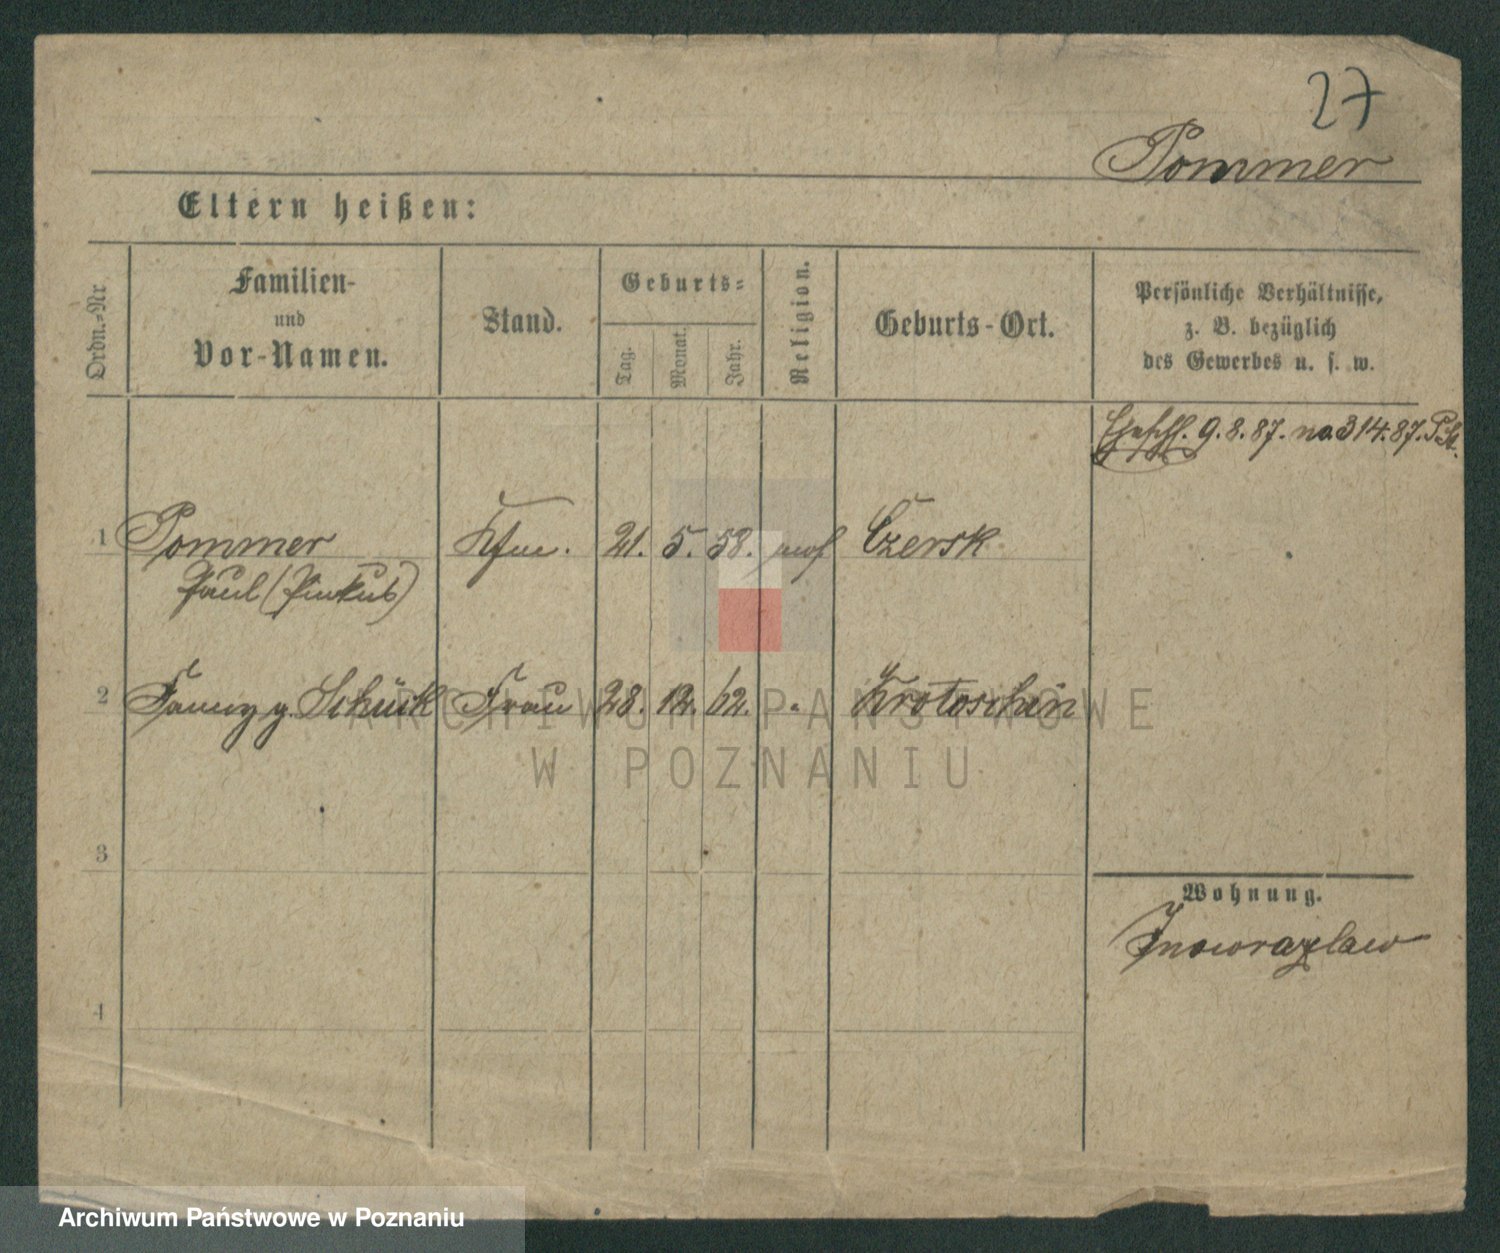 27
Pommer
Eltern heißen:
Ordn.-Nr
Familien-
und
Vor-Namen.
Stand.
Geburts-
Tag.
Monat.
Jahr.
Religion.
Geburts-Ort.
Persönliche Verhältnisse,
z. B. bezüglich
des Gewerbes u. s. w.
Eheschl. 9.8.87. no 314.87. P. St.
1 Pommer Kfm. 21. 5. 58. mos Czersk
Paul (Pinkus)
2 Fanny g. Schück Frau 28. 12. 62. " Krotoschin
3
4
Wohnung.
Inowrazlaw
ARCHIWUM PAŃSTWOWE
W POZNANIU
Archiwum Państwowe w Poznaniu